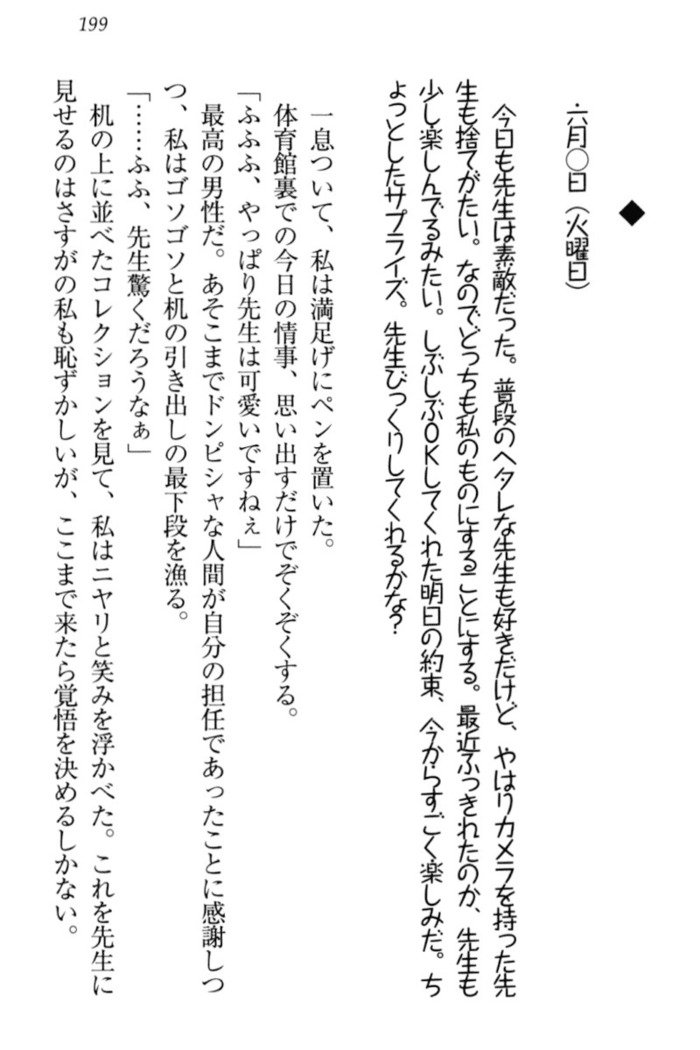 199
◆
六月〇日（火曜日）
今日も先生は素敵だった。普段のヘタレな先生も好きだけど、やはりカメラを持った先
生も捨てがたい。なのでどっちも私のものにすることにする。最近ふっきれたのか、先生も
少し楽しんでるみたい。しぶしぶOKしてくれた明日の約束、今からすごく楽しみだ。ち
ょっとしたサプライズ。先生びっくりしてくれるかな？
一息ついて、私は満足げにペンを置いた。
体育館裏での今日の情事、思い出すだけでぞくぞくする。
「ふふふ、やっぱり先生は可愛いですねぇ」
最高の男性だ。あそこまでドンピシャな人間が自分の担任であったことに感謝しつ
つ、私はゴソゴソと机の引き出しの最下段を漁る。
「……ふふ、先生驚くだろうなぁ」
机の上に並べたコレクションを見て、私はニヤリと笑みを浮かべた。これを先生に
見せるのはさすがの私も恥ずかしいが、ここまで来たら覚悟を決めるしかない。